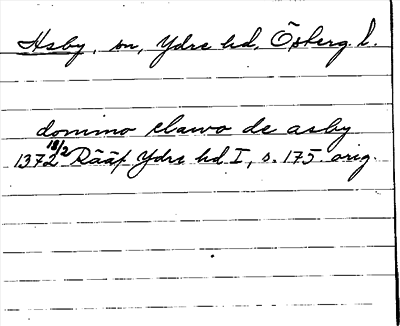 Asby, sn, Ydre hd, Österg. l.
domino clawo de asby
1372 18/2 Rääf Ydre hd I, s. 175. orig.